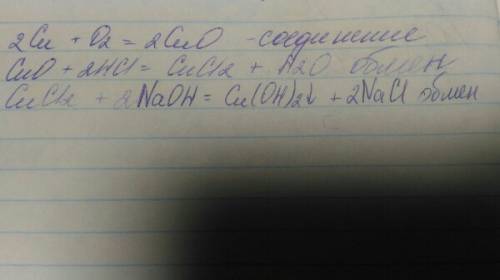 2Cu + O2 = 2CuO - соединение
CuO + 2HCl = CuCl2 + H2O обмен
CuCl2 + 2NaOH = Cu(OH)2↓ + 2NaCl обмен